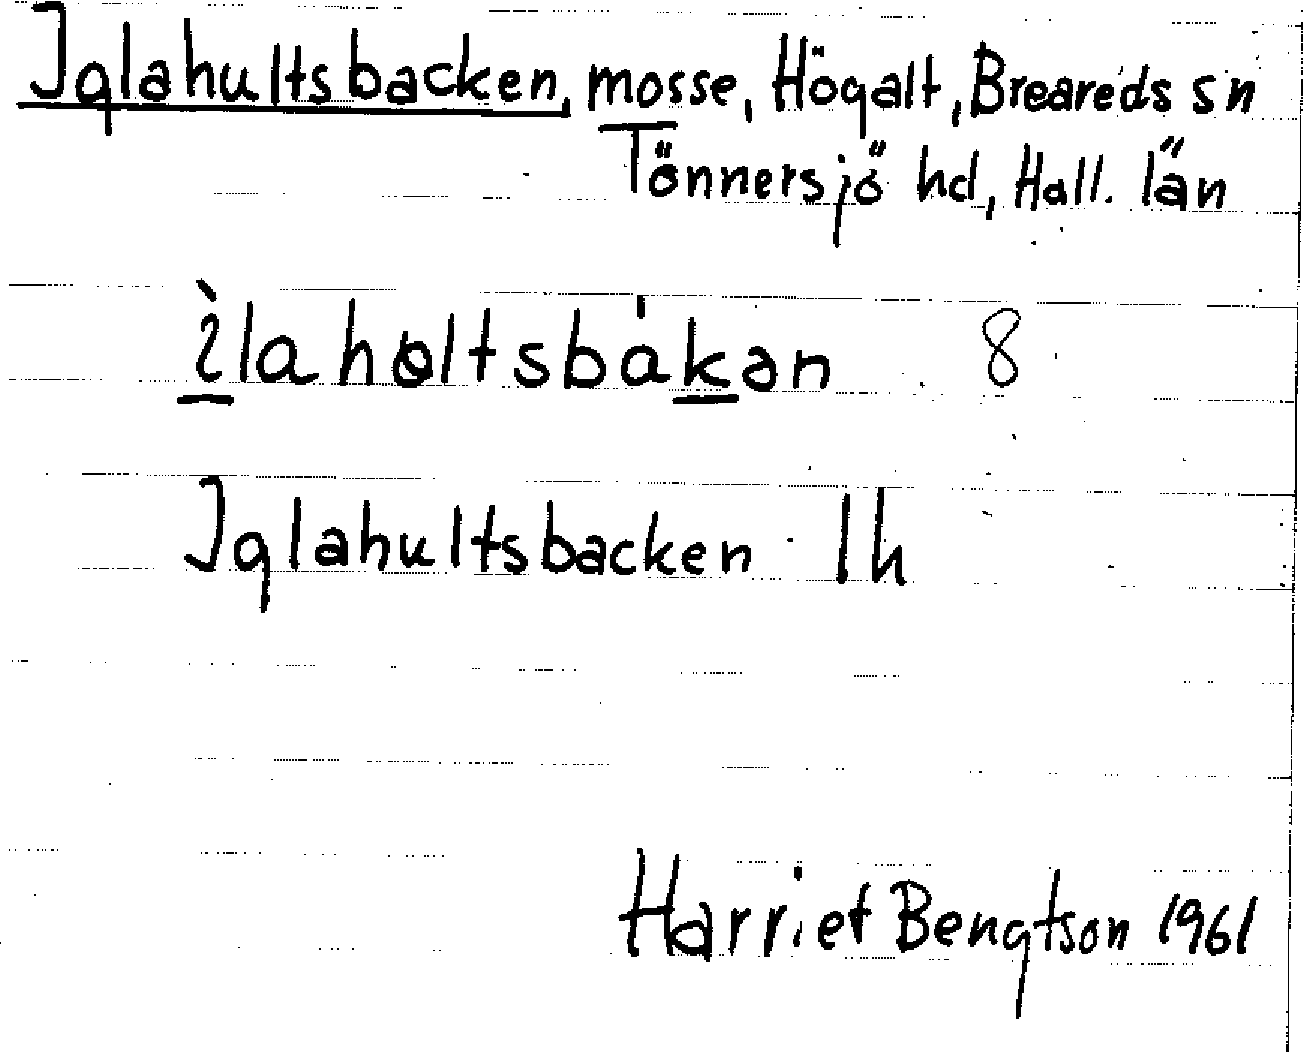 Iglahultsbacken, mosse, Högalt, Breareds sn
Tönnersjö hd, Hall. län
ìlahɷltsbákan 8
Iglahultsbacken lh
Harriet Bengtson 1961